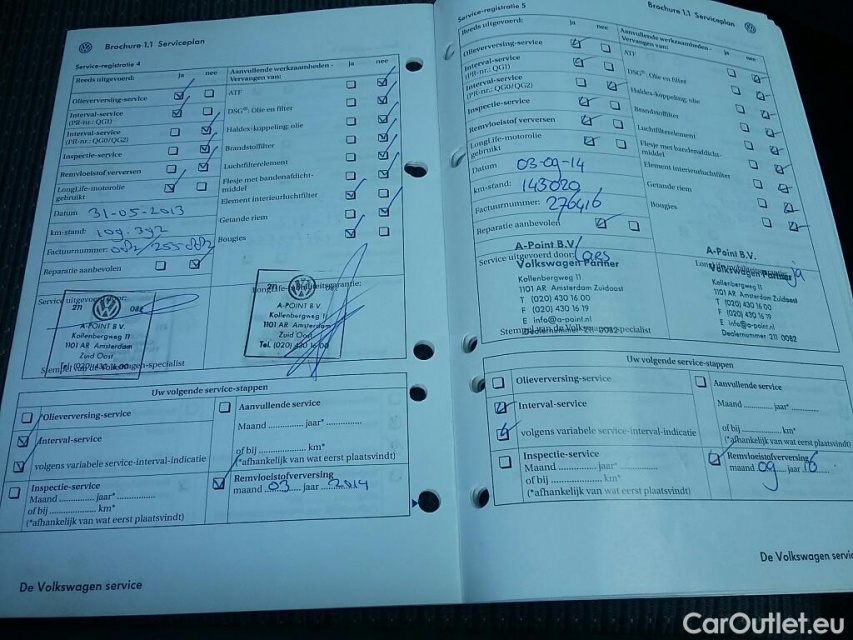 Brochure 1.1 Serviceplan
Service-registratie 4
Reeds uitgevoerd: ja nee
Olieverversing-service
Interval-service
(PR-nr.: QG1)
Interval-service
(PR-nr.: QG0/QG2)
Inspectie-service
Remvloeistof verversen
LongLife-motorolie
gebruikt
Datum 31-05-2013
km-stand: 109.392
Factuurnummer:
Reparatie aanbevolen
Aanvullende werkzaamheden - ja nee
Vervangen van:
ATF
DSG®: Olie en filter
Haldex-koppeling: olie
Brandstoffilter
Luchtfilterelement
Flesje met bandenafdicht-
middel
Element interieurluchtfilter
Getande riem
Bougies
Service uitgevoerd door:
A-POINT B.V.
Kollenbergweg 11
1101 AR Amsterdam
Zuid Oost
Tel. (020) 430 16 00
Stempel van de Volkswagen-specialist
A-POINT B.V.
Kollenbergweg 11
1101 AR Amsterdam
Zuid Oost
Tel. (020) 430 16 00
Uw volgende service-stappen
Olieverversing-service
Interval-service
volgens variabele service-interval-indicatie
Inspectie-service
Maand ............ jaar* ..............
of bij ............... km*
(*afhankelijk van wat eerst plaatsvindt)
Aanvullende service
Maand ............ jaar* ..............
of bij ............... km*
(*afhankelijk van wat eerst plaatsvindt)
Remvloeistofverversing
maand 03 jaar 2014
De Volkswagen service
Service-registratie 5
Brochure 1.1 Serviceplan
Reeds uitgevoerd: ja nee
Olieverversing-service
Interval-service
(PR-nr.: QG1)
Interval-service
(PR-nr.: QG0/QG2)
Inspectie-service
Remvloeistof verversen
LongLife-motorolie
gebruikt
Datum 03-09-14
km-stand: 143029
Factuurnummer: 276416
Reparatie aanbevolen
Aanvullende werkzaamheden - ja nee
Vervangen van:
ATF
DSG®: Olie en filter
Haldex-koppeling: olie
Brandstoffilter
Luchtfilterelement
Flesje met bandenafdicht-
middel
Element interieurluchtfilter
Getande riem
Bougies
A-Point B.V.
Service uitgevoerd door:
Volkswagen Partner
Kollenbergweg 11
1101 AR Amsterdam Zuidoost
T (020) 430 16 00
F (020) 430 16 19
E info@a-point.nl
Dealernummer 211 0082
Stempel van de Volkswagen-specialist
A-Point B.V.
Volkswagen Partner
Kollenbergweg 11
1101 AR Amsterdam Zuidoost
T (020) 430 16 00
F (020) 430 16 19
E info@a-point.nl
Dealernummer 211 0082
Uw volgende service-stappen
Olieverversing-service
Interval-service
volgens variabele service-interval-indicatie
Inspectie-service
Maand ............ jaar* ..............
of bij ............... km*
(*afhankelijk van wat eerst plaatsvindt)
Aanvullende service
Maand ............ jaar* ..............
of bij ............... km*
(*afhankelijk van wat eerst plaatsvindt)
Remvloeistofverversing
maand 09 jaar 16
De Volkswagen
CarOutlet.eu